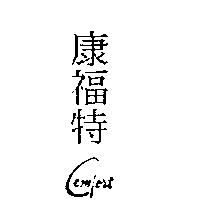 康福特
Comfort